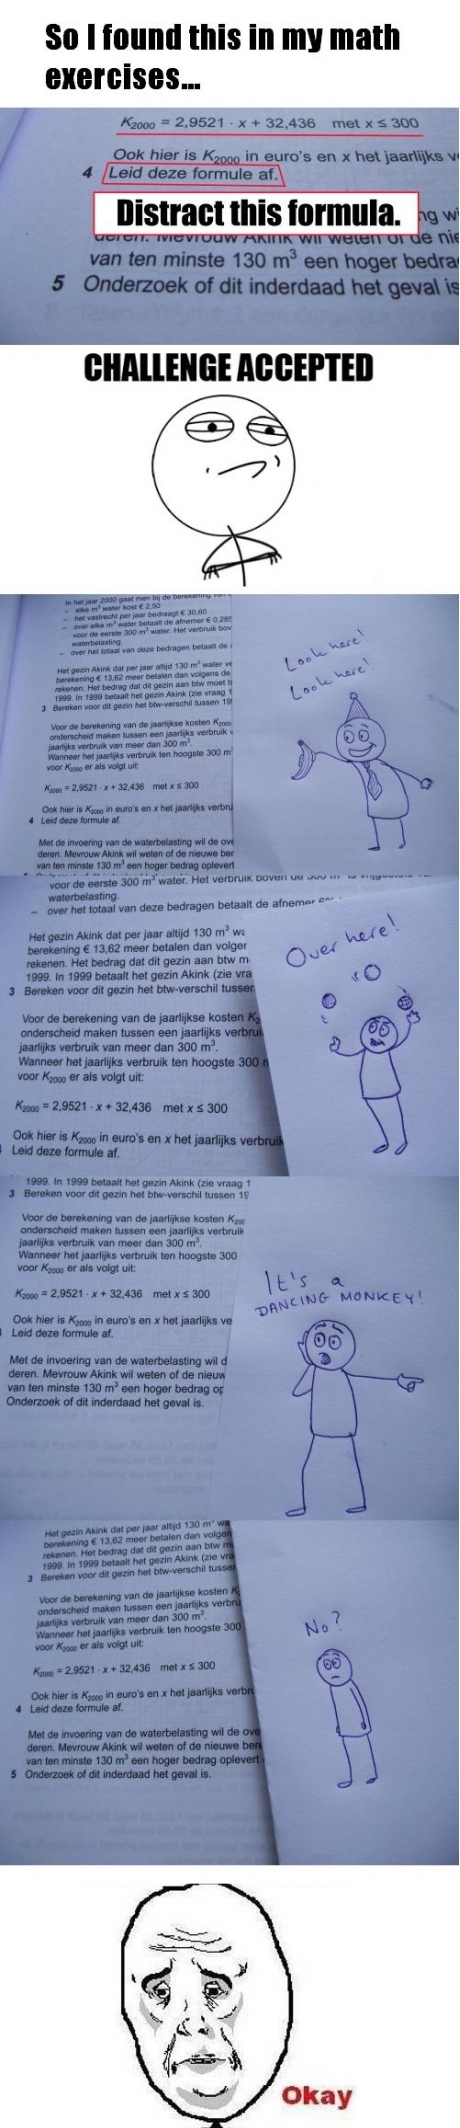 So I found this in my math
exercises...
K2000 = 2,9521 · x + 32,436 met x ≤ 300
Ook hier is K2000 in euro's en x het jaarlijks
4 Leid deze formule af.
Distract this formula.
van ten minste 130 m³ een hoger
5 Onderzoek of dit inderdaad het geval is
CHALLENGE ACCEPTED
In het jaar 2000 gaat men bij de berekening
– elke m³ water kost € 2,50
– het vastrecht per jaar bedraagt € 30,60
– over elke m³ water betaalt de afnemer €
voor de eerste 300 m³ water. Het verbruik
waterbelasting.
– over het totaal van deze bedragen betaalt de
Het gezin Akink dat per jaar altijd 130 m³ water
berekening € 13,62 meer betalen dan volgens de
rekenen. Het bedrag dat dit gezin aan btw moet
1999. In 1999 betaalt het gezin Akink (zie vraag
3 Bereken voor dit gezin het btw-verschil tussen
Voor de berekening van de jaarlijkse kosten K2000
onderscheid maken tussen een jaarlijks verbruik
jaarlijks verbruik van meer dan 300 m³.
Wanneer het jaarlijks verbruik ten hoogste 300 m
voor K2000 er als volgt uit:
K2000 = 2,9521 · x + 32,436 met x ≤ 300
Ook hier is K2000 in euro's en x het jaarlijks
4 Leid deze formule af.
Met de invoering van de waterbelasting wil de
deren. Mevrouw Akink wil weten of de nieuwe
van ten minste 130 m³ een hoger bedrag oplevert
Look here!
Look here!
voor de eerste 300 m³ water. Het verbruik boven de
waterbelasting.
– over het totaal van deze bedragen betaalt de afnemer
Het gezin Akink dat per jaar altijd 130 m³
berekening € 13,62 meer betalen dan
rekenen. Het bedrag dat dit gezin aan btw
1999. In 1999 betaalt het gezin Akink (zie
3 Bereken voor dit gezin het btw-verschil
Voor de berekening van de jaarlijkse kosten
onderscheid maken tussen een jaarlijks
jaarlijks verbruik van meer dan 300 m³.
Wanneer het jaarlijks verbruik ten hoogste 300
voor K2000 er als volgt uit:
K2000 = 2,9521 · x + 32,436 met x ≤ 300
Ook hier is K2000 in euro's en x het jaarlijks
Leid deze formule af.
Over here!
1999. In 1999 betaalt het gezin Akink (zie vraag 1
3 Bereken voor dit gezin het btw-verschil tussen 19
Voor de berekening van de jaarlijkse kosten
onderscheid maken tussen een jaarlijks verbruik
jaarlijks verbruik van meer dan 300 m³.
Wanneer het jaarlijks verbruik ten hoogste 300
voor K2000 er als volgt uit:
K2000 = 2,9521 · x + 32,436 met x ≤ 300
Ook hier is K2000 in euro's en x het jaarlijks ve
Leid deze formule af.
Met de invoering van de waterbelasting wil d
deren. Mevrouw Akink wil weten of de nieuw
van ten minste 130 m³ een hoger bedrag op
Onderzoek of dit inderdaad het geval is.
It's a
DANCING MONKEY!
Het gezin Akink dat per jaar altijd 130 m³
berekening € 13,62 meer betalen dan
rekenen. Het bedrag dat dit gezin aan btw
1999. In 1999 betaalt het gezin Akink (zie
3 Bereken voor dit gezin het btw-verschil
Voor de berekening van de jaarlijkse kosten
onderscheid maken tussen een jaarlijks
jaarlijks verbruik van meer dan 300 m³.
Wanneer het jaarlijks verbruik ten hoogste 300
voor K2000 er als volgt uit:
K2000 = 2,9521 · x + 32,436 met x ≤ 300
Ook hier is K2000 in euro's en x het jaarlijks
4 Leid deze formule af.
Met de invoering van de waterbelasting wil de
deren. Mevrouw Akink wil weten of de nieuwe
van ten minste 130 m³ een hoger bedrag oplevert
5 Onderzoek of dit inderdaad het geval is.
No?
Okay